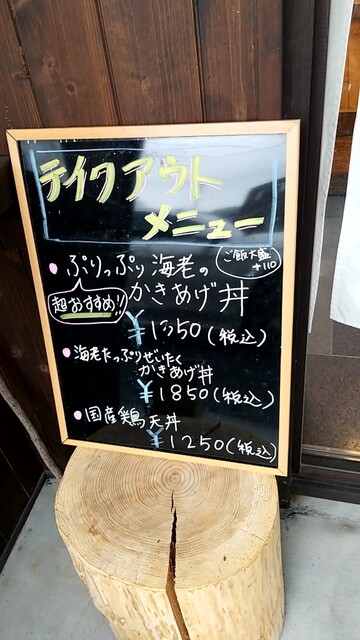 テイクアウト
メニュー
ご飯大盛
+110
ぷりっぷり海老の
超おすすめ!!
かきあげ丼
¥1350(税込)
海老たっぷりぜいたく
かきあげ丼
¥1850(税込)
国産鶏天丼
¥1250(税込)